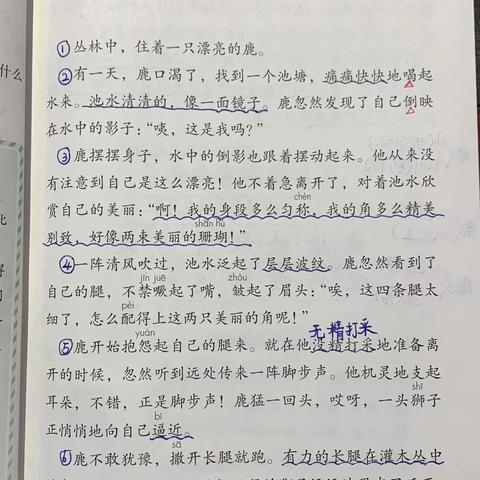 什么
比
得
①丛林中，住着一只漂亮的鹿。
②有一天，鹿口渴了，找到一个池塘，痛痛快快地喝起
水来。池水清清的，像一面镜子。鹿忽然发现了自己倒映
在水中的影子：“咦，这是我吗？”
③鹿摆摆身子，水中的倒影也跟着摆动起来。他从来没
有注意到自己是这么漂亮！他不着急离开了，对着池水欣
chèn
赏自己的美丽：“啊！我的身段多么匀称，我的角多么精美
shān hú
别致，好像两束美丽的珊瑚！”
④一阵清风吹过，池水泛起了层层波纹。鹿忽然看到了
jīn juē zhòu
自己的腿，不禁噘起了嘴，皱起了眉头：“唉，这四条腿太
pèi
细了，怎么配得上这两只美丽的角呢！”
yuàn 无精打采
⑤鹿开始抱怨起自己的腿来。就在他没精打采地准备离
开的时候，忽然听到远处传来一阵脚步声。他机灵地支起
shī
耳朵，不错，正是脚步声！鹿猛一回头，哎呀，一头狮子
bī
正悄悄地向自己逼近。
sā
⑥鹿不敢犹豫，撒开长腿就跑。有力的长腿在灌木丛中